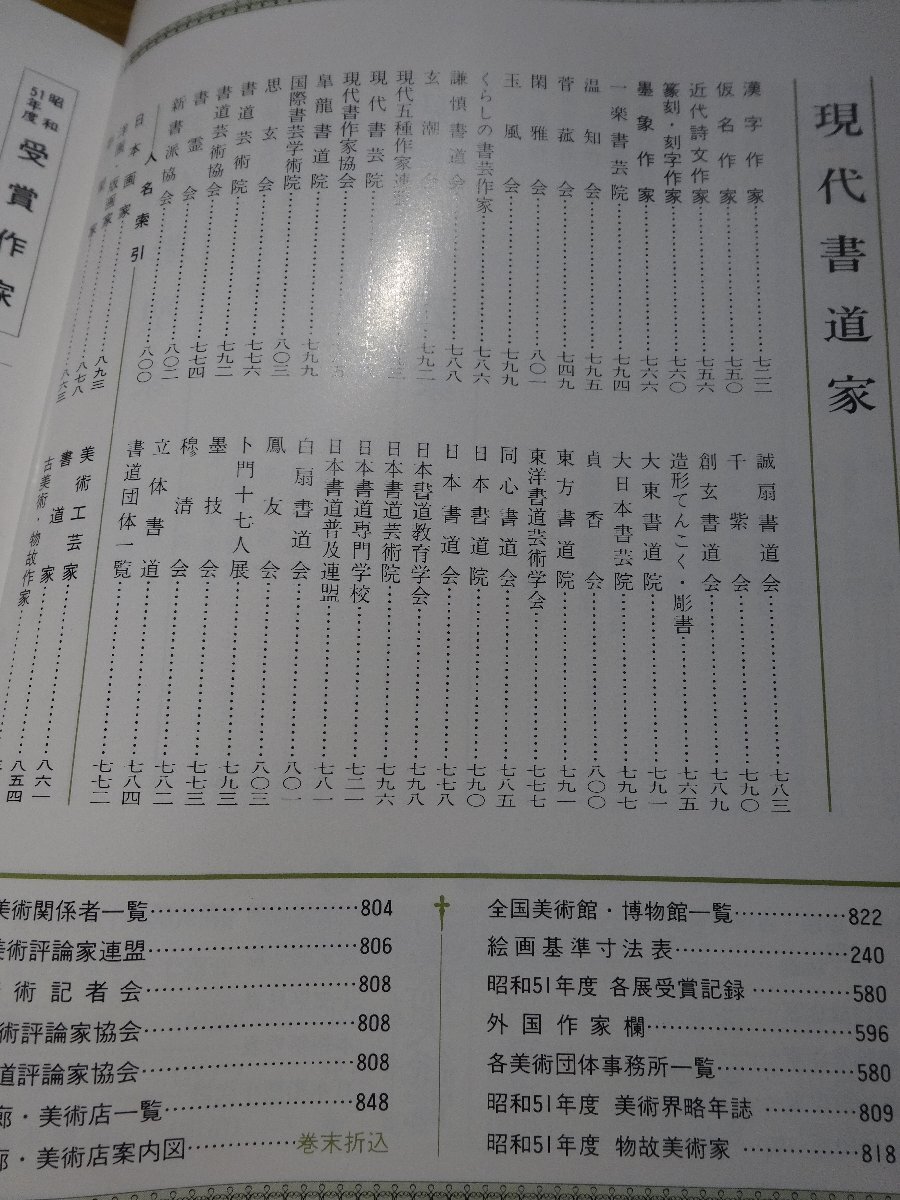 現代書道家
漢字作家……七二二
仮名作家……七五〇
近代詩文作家……七五六
篆刻・刻字作家……七六〇
墨象作家……七六六
一楽書芸院……七九四
温知会……七九五
菅菰会……七四九
閑雅会……八〇一
玉風会……七九九
くらしの書芸作家……七八六
謙慎書道会……七八八
玄潮会……七九二
現代五種作家連
現代書芸院
現代書作家協会
皐龍書道院
国際書芸学術院……七九九
思玄会……八〇三
書道芸術院……七七六
書道芸術協会……七九二
書霊会……七七四
新書派協会……八〇二
八〇〇
人名索引
日本画家……八九三
八七八
八六三
誠扇書道会……七八三
千紫会……七九〇
創玄書道会……七八九
造形てんこく・彫書……七六五
大東書道院……七九一
大日本書芸院……七九七
貞香会……八〇〇
東方書道院……七九一
東洋書道芸術学会……七七七
同心書道会……七八五
日本書道院……七九〇
日本書道会……七七八
日本書道教育学会……七九八
日本書道芸術院……七九六
日本書道専門学校……七二一
日本書道普及連盟……七八一
白扇書道会……八〇一
鳳友会……八〇三
卜門十七人展……七九三
墨技会……七七三
穆清会……七八二
立体書道……七八四
書道団体一覧……七七二
美術工芸家……八六一
書道家……八五四
古美術・物故作家
昭和51年度 受賞作家
美術関係者一覧……804
美術評論家連盟……806
術記者会……808
術評論家協会……808
道評論家協会……808
廊・美術店一覧……848
廊・美術店案内図……巻末折込
全国美術館・博物館一覧……822
絵画基準寸法表……240
昭和51年度 各展受賞記録……580
外国作家欄……596
各美術団体事務所一覧……580
昭和51年度 美術界略年誌……809
昭和51年度 物故美術家……818